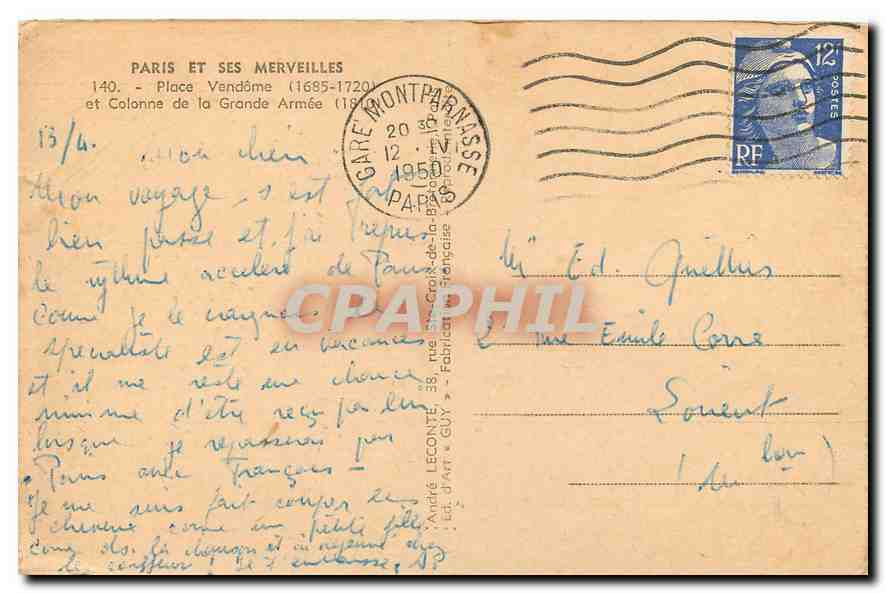 PARIS ET SES MERVEILLES
140. - Place Vendôme (1685-1720)
et Colonne de la Grande Armée (181
GARE MONTPARNASSE
20 30
12 · IV
1950
PARIS
12F
POSTES
RF
13/4. Mon chéri
Mon voyage s'est fort
bien passé et j'ai repris
le rythme accéléré de Paris.
Comme je le craignais le
spécialiste est en vacances
et il me reste une chance
minime d'être reçu par lui
lorsque je repasserai par
Paris avec François -
Je me suis fait couper les
cheveux comme une petite fille
comme ds. la chanson et ai déjeuné chez
le coiffeur! Je t'embrasse,
André LECONTE, 38, rue Ste-Croix-de-la-Bretonnerie, Paris
Ed. d'Art « GUY » - Fabrication Française - Reproduction interdite
CPAPHIL
Mr Ed. Quellus
2 rue Emile Corre
Lorient